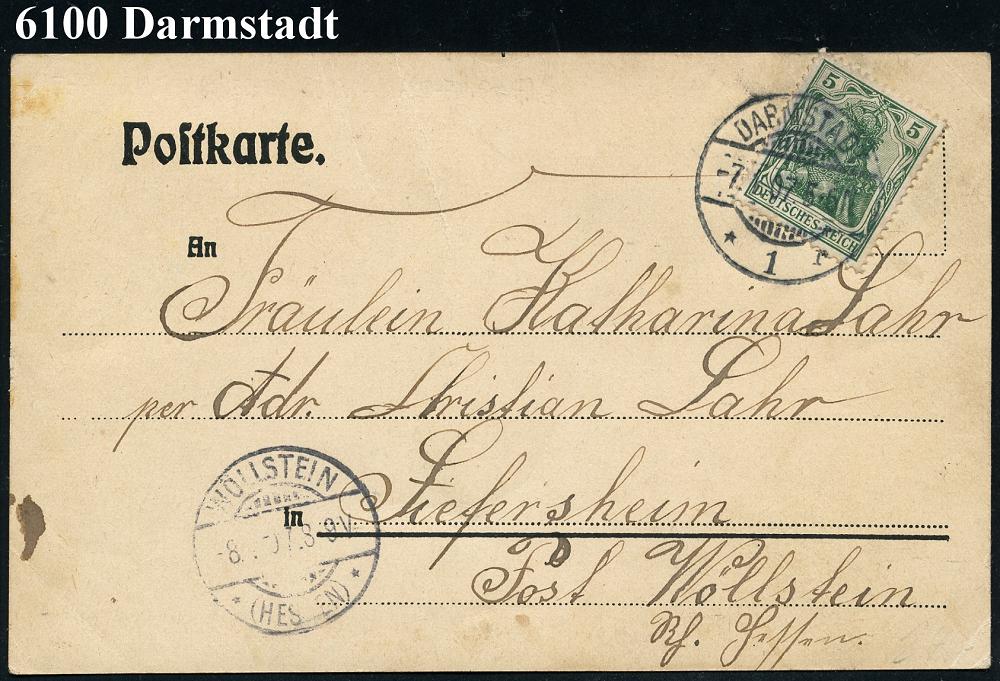 6100 Darmstadt
Poſtkarte.
5 5
DEUTSCHES REICH
DARMSTADT
* 1 r
An
Fräulein Katharina Lahr
per Adr. Christian Lahr
WÖLLSTEIN
8. 8-9V
* (HESSEN) *
In Siefersheim
Post Wöllstein
Rh. Hessen.